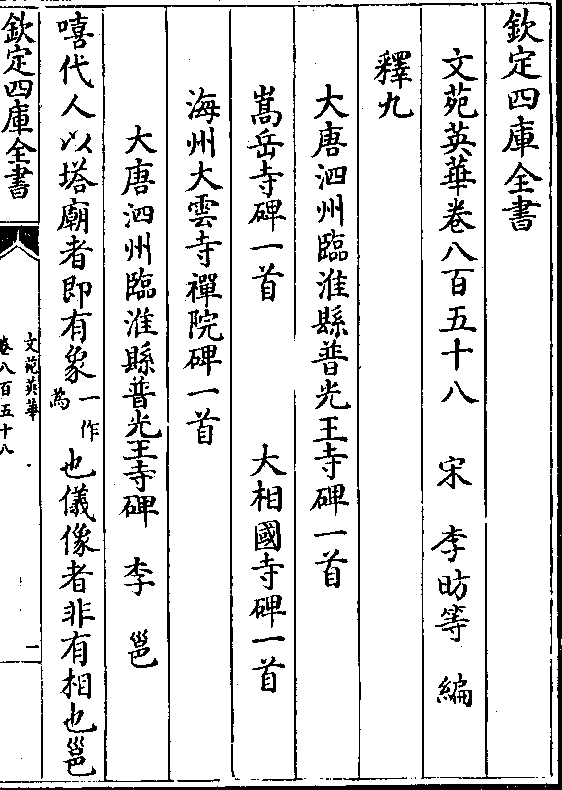 欽定四庫全書
文苑英華卷八百五十八 宋 李昉等 編
釋九
大唐泗州臨淮縣普光王寺碑一首
嵩岳寺碑一首 大相國寺碑一首
海州大雲寺禪院碑一首
大唐泗州臨淮縣普光王寺碑 李邕
嘻代人以塔廟者即有象一作為也儀像者非有相也邕
欽定四庫全書
文苑英華
卷八百五十八
一